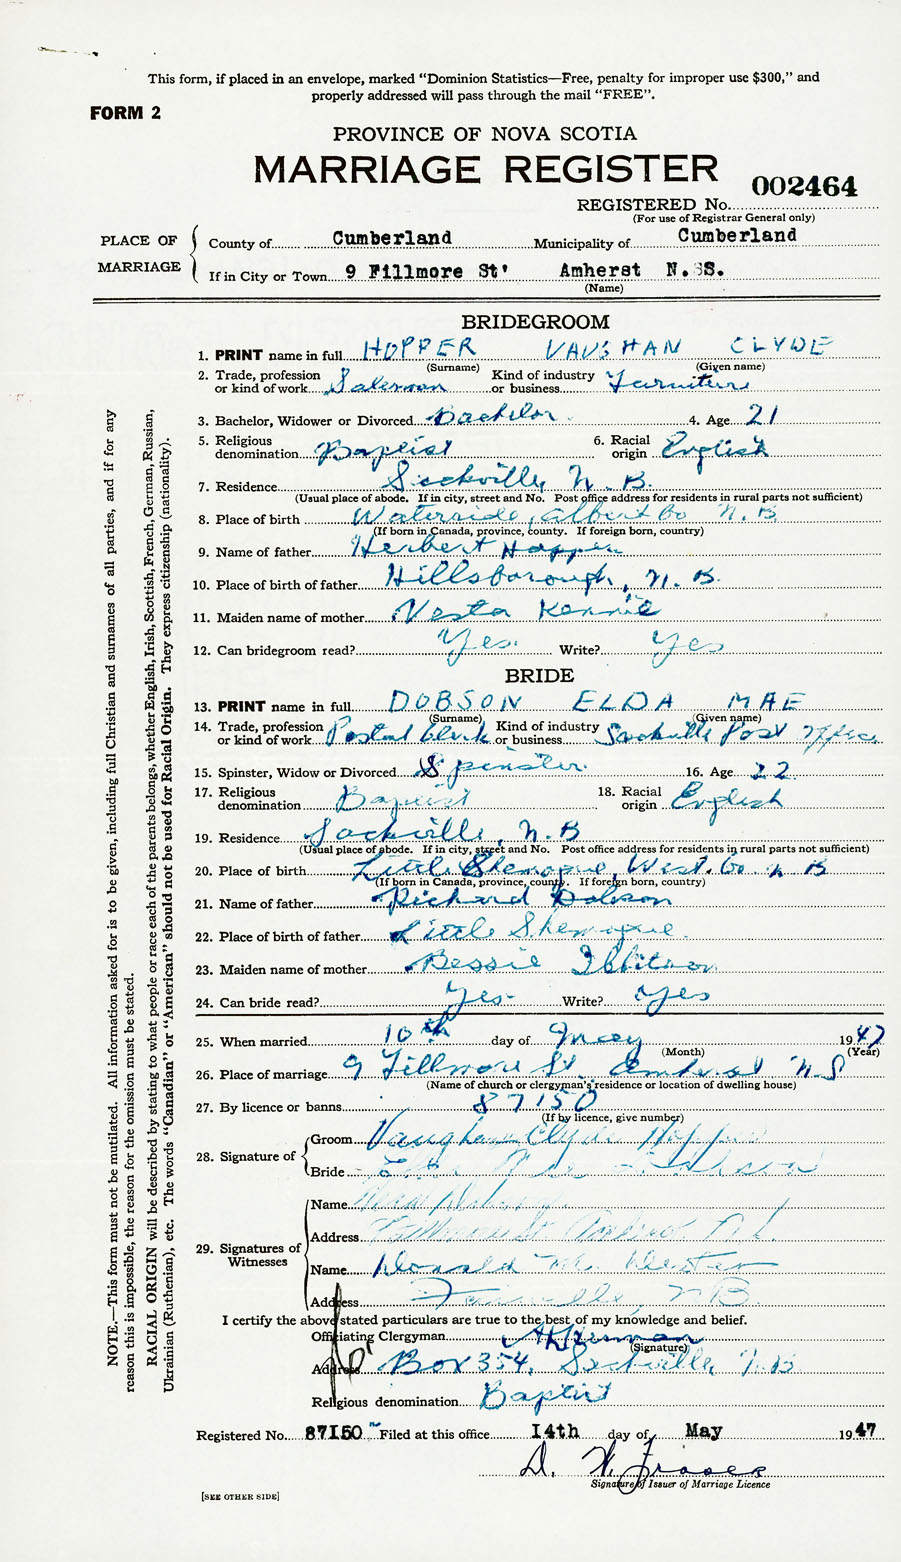 This form, if placed in an envelope, marked “Dominion Statistics—Free, penalty for improper use $300,” and
properly addressed will pass through the mail “FREE”.
FORM 2
PROVINCE OF NOVA SCOTIA
MARRIAGE REGISTER
002464
REGISTERED No.
(For use of Registrar General only)
PLACE OF MARRIAGE
County of Cumberland Municipality of Cumberland
If in City or Town 9 Fillmore St' Amherst N.S.
(Name)
BRIDEGROOM
1. PRINT name in full HOPPER VAUGHAN CLYDE
(Surname) (Given name)
2. Trade, profession or kind of work Salesman Kind of industry or business Furniture
3. Bachelor, Widower or Divorced Bachelor 4. Age 21
5. Religious denomination Baptist 6. Racial origin English
7. Residence Sackville, N.B.
(Usual place of abode. If in city, street and No. Post office address for residents in rural parts not sufficient)
8. Place of birth Waterside, Albert Co N.B.
(If born in Canada, province, county. If foreign born, country)
9. Name of father Herbert Hopper
10. Place of birth of father Hillsborough, N.B.
11. Maiden name of mother Vesta Kennie
12. Can bridegroom read? Yes. Write? Yes
BRIDE
13. PRINT name in full DOBSON ELDA MAE
(Surname) (Given name)
14. Trade, profession or kind of work Postal Clerk Kind of industry or business Sackville Post Office
15. Spinster, Widow or Divorced Spinster 16. Age 22
17. Religious denomination Baptist 18. Racial origin English
19. Residence Sackville, N.B
(Usual place of abode. If in city, street and No. Post office address for residents in rural parts not sufficient)
20. Place of birth Little Shemogue, West. Co N B
(If born in Canada, province, county. If foreign born, country)
21. Name of father Richard Dobson
22. Place of birth of father Little Shemogue
23. Maiden name of mother Bessie
24. Can bride read? Yes Write? Yes
25. When married 10th day of May 1947
(Month) (Year)
26. Place of marriage 9 Fillmore St. Amherst N.S
(Name of church or clergyman's residence or location of dwelling house)
27. By licence or banns 87150
(If by licence, give number)
28. Signature of
Groom Vaughan Clyde Hopper
Bride Elda Mae Dobson
29. Signatures of Witnesses
Name
Address Fillmore St Amherst N.S.
Name Donald M.
Address N B
I certify the above stated particulars are true to the best of my knowledge and belief.
Officiating Clergyman
(Signature)
Address Box 354, Sackville, N.B.
Religious denomination Baptist
Registered No. 87150 Filed at this office 14th day of May 1947
D. W. Fraser
Signature of Issuer of Marriage Licence
[SEE OTHER SIDE]
NOTE.—This form must not be mutilated. All information asked for is to be given, including full Christian and surnames of all parties, and if for any
reason this is impossible, the reason for the omission must be stated.
RACIAL ORIGIN will be described by stating to what people or race each of the parents belongs, whether English, Irish, Scottish, French, German, Russian,
Ukrainian (Ruthenian), etc. The words “Canadian” or “American” should not be used for Racial Origin. They express citizenship (nationality).